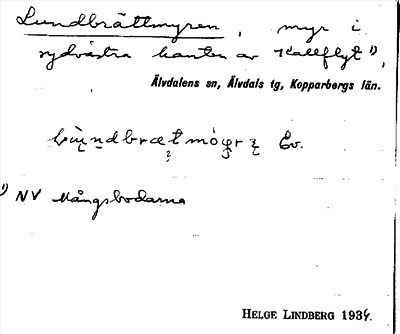 Lundbrättmyren, myr i
sydvästra kanten av Kallflyt 1),
Älvdalens sn, Älvdals tg, Kopparbergs län.
Ev.
1) NV Mångsbodarna
HELGE LINDBERG 1934.